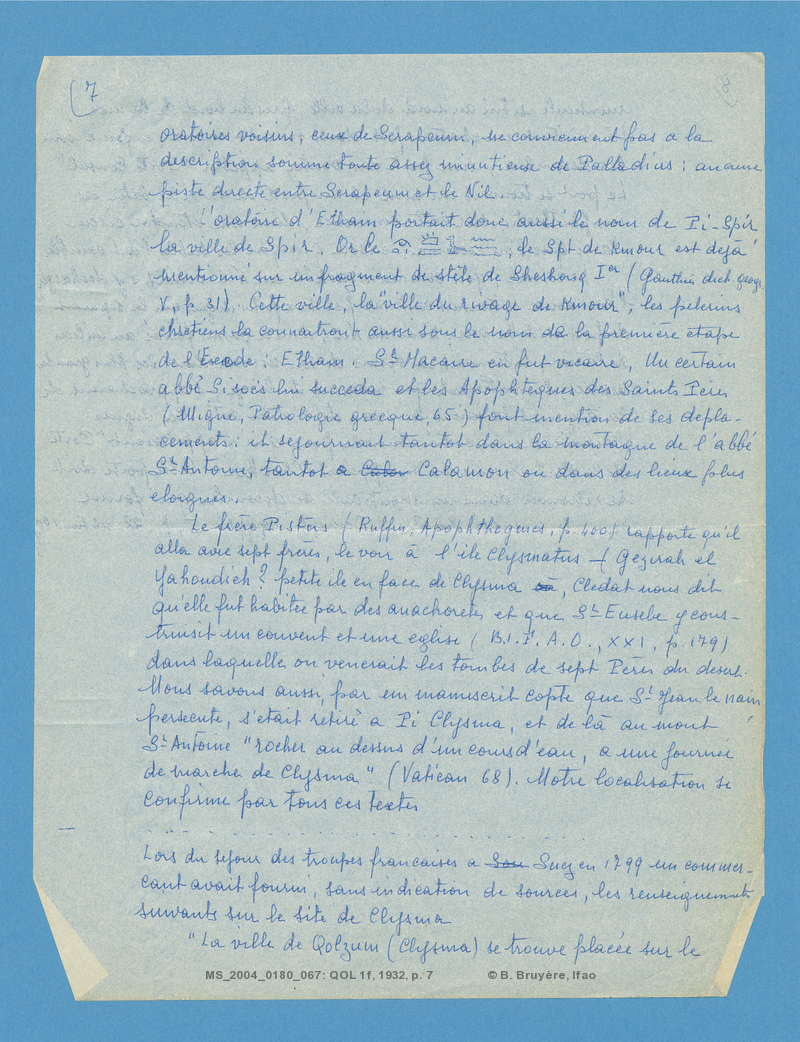 7
oratoires voisins, ceux de Serapeum, ne conviennent pas a la
description somme toute assez minutieuse de Palladius : aucune
piste directe entre Serapeum et le Nil.
L'oratoire d'Etham portait donc aussi le nom de Pi-Spir
la ville de Spir. Or le , le Spt de Kmour est dejà
mentionné sur un fragment de stèle de Sheshonq Ier (Gauthier dict. geogr.
V, p. 31). Cette ville, la "ville du rivage de Kmour", les pelerins
chretiens la connaitront aussi sous le nom de la première etape
de l'Exode : Etham. St Macaire en fut vicaire, Un certain
abbé Sisoës lui succeda et les Apophtegmes des Saints Pères
(Migne, Patrologie grecque, 65) font mention de ses depla-
cements : il sejournait tantot dans la montagne de l'abbé
St Antoine, tantot a Calamon ou dans des lieux plus
eloignes.
Le frère Pistus (Ruffin, Apophthegmes, p. 400) rapporte qu'il
alla avec sept frères, le voir à l'ile Clysmatus Gezirah el
Yahoudieh? petite ile en face de Clysma , Cledat nous dit
qu'elle fut habitée par des anachoretes et que St Eusebe y cons-
truisit un couvent et une eglise (B.I.F.A.O., XXI, p. 179)
dans laquelle on venerait les tombes de sept Pères du desert.
Nous savons aussi, par un manuscrit copte que St Jean le nain
persecute, s'etait retiré a Pi Clysma, et de là au mont
St Antoine "rocher au dessus d'un cours d'eau, a une journée
de marche de Clysma" (Vatican 68). Notre localisation se
confirme par tous ces textes
Lors du sejour des troupes francaises a Suez en 1799 un commer-
cant avait fourni, sans indication de sources, les renseignements
suivants sur le site de Clysma
"La ville de Qolzum (Clysma) se trouve placée sur le
MS_2004_0180_067: QOL 1f, 1932, p. 7 © B. Bruyère, Ifao